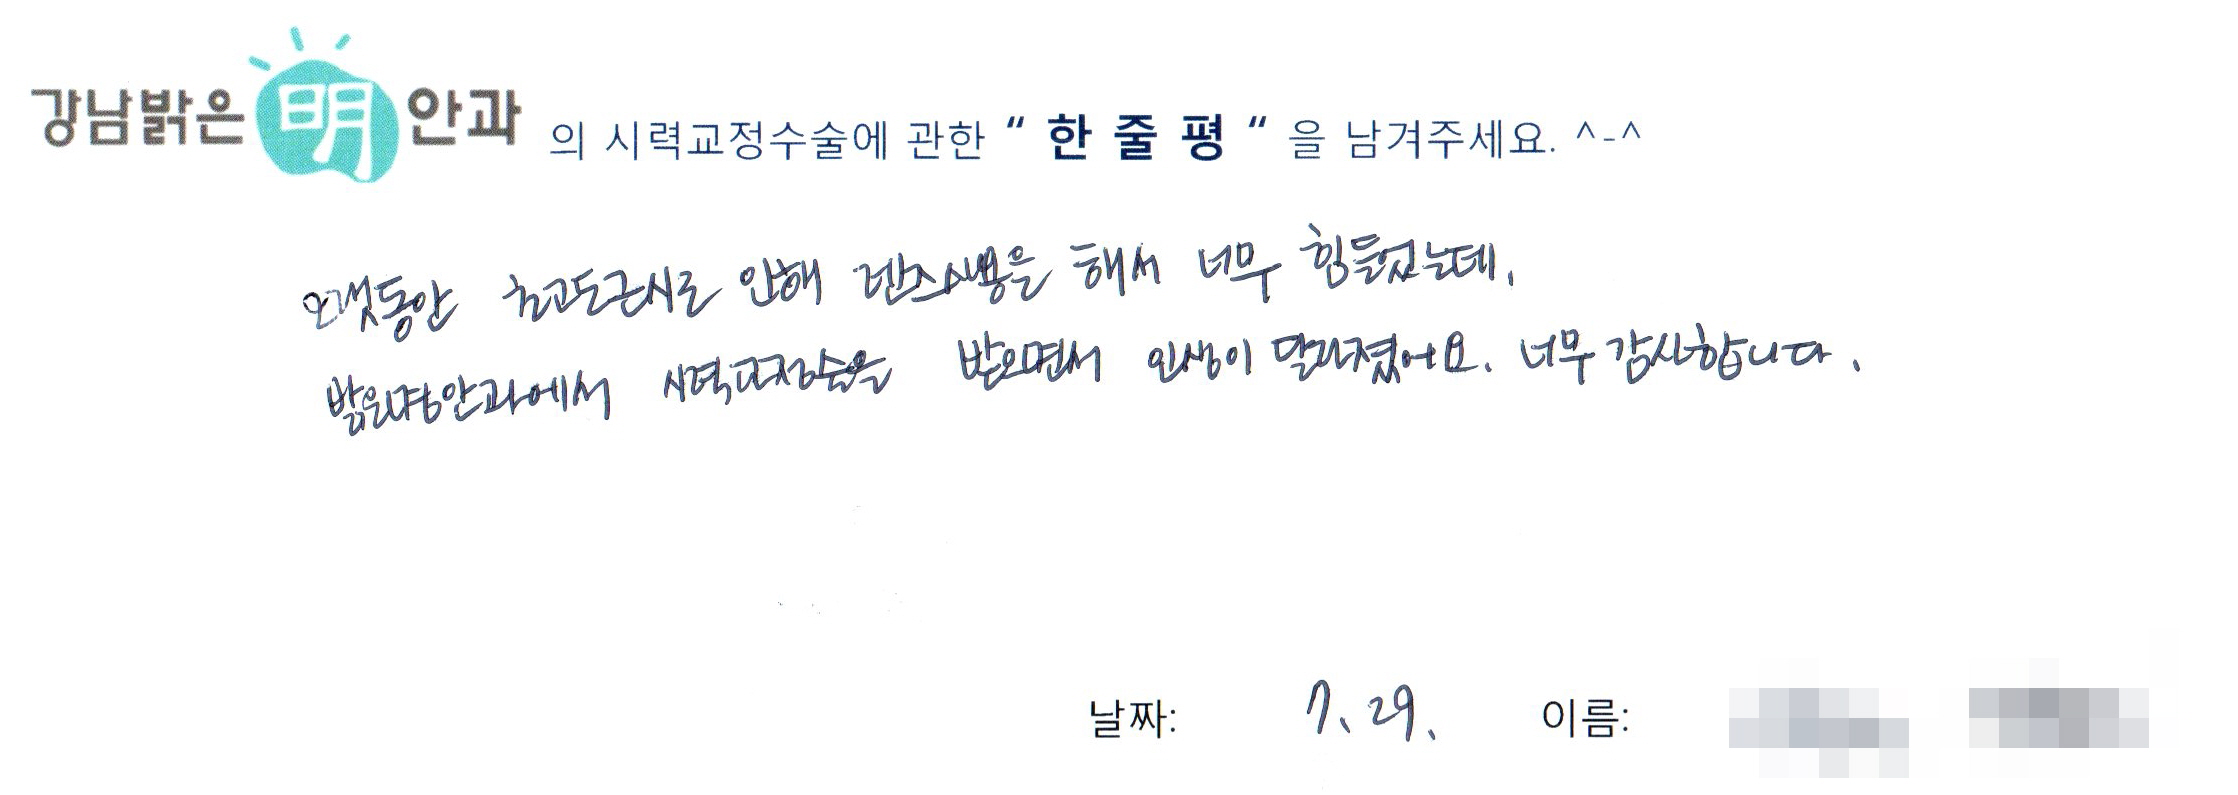 강남밝은明안과 의 시력교정수술에 관한 “ 한 줄 평 “ 을 남겨주세요. ^-^
오랫동안 초고도근시로 인해 렌즈사용을 해서 너무 힘들었는데,
밝은명안과에서 시력교정술을 받으면서 인생이 달라졌어요. 너무 감사합니다.
날짜: 7. 29. 이름: